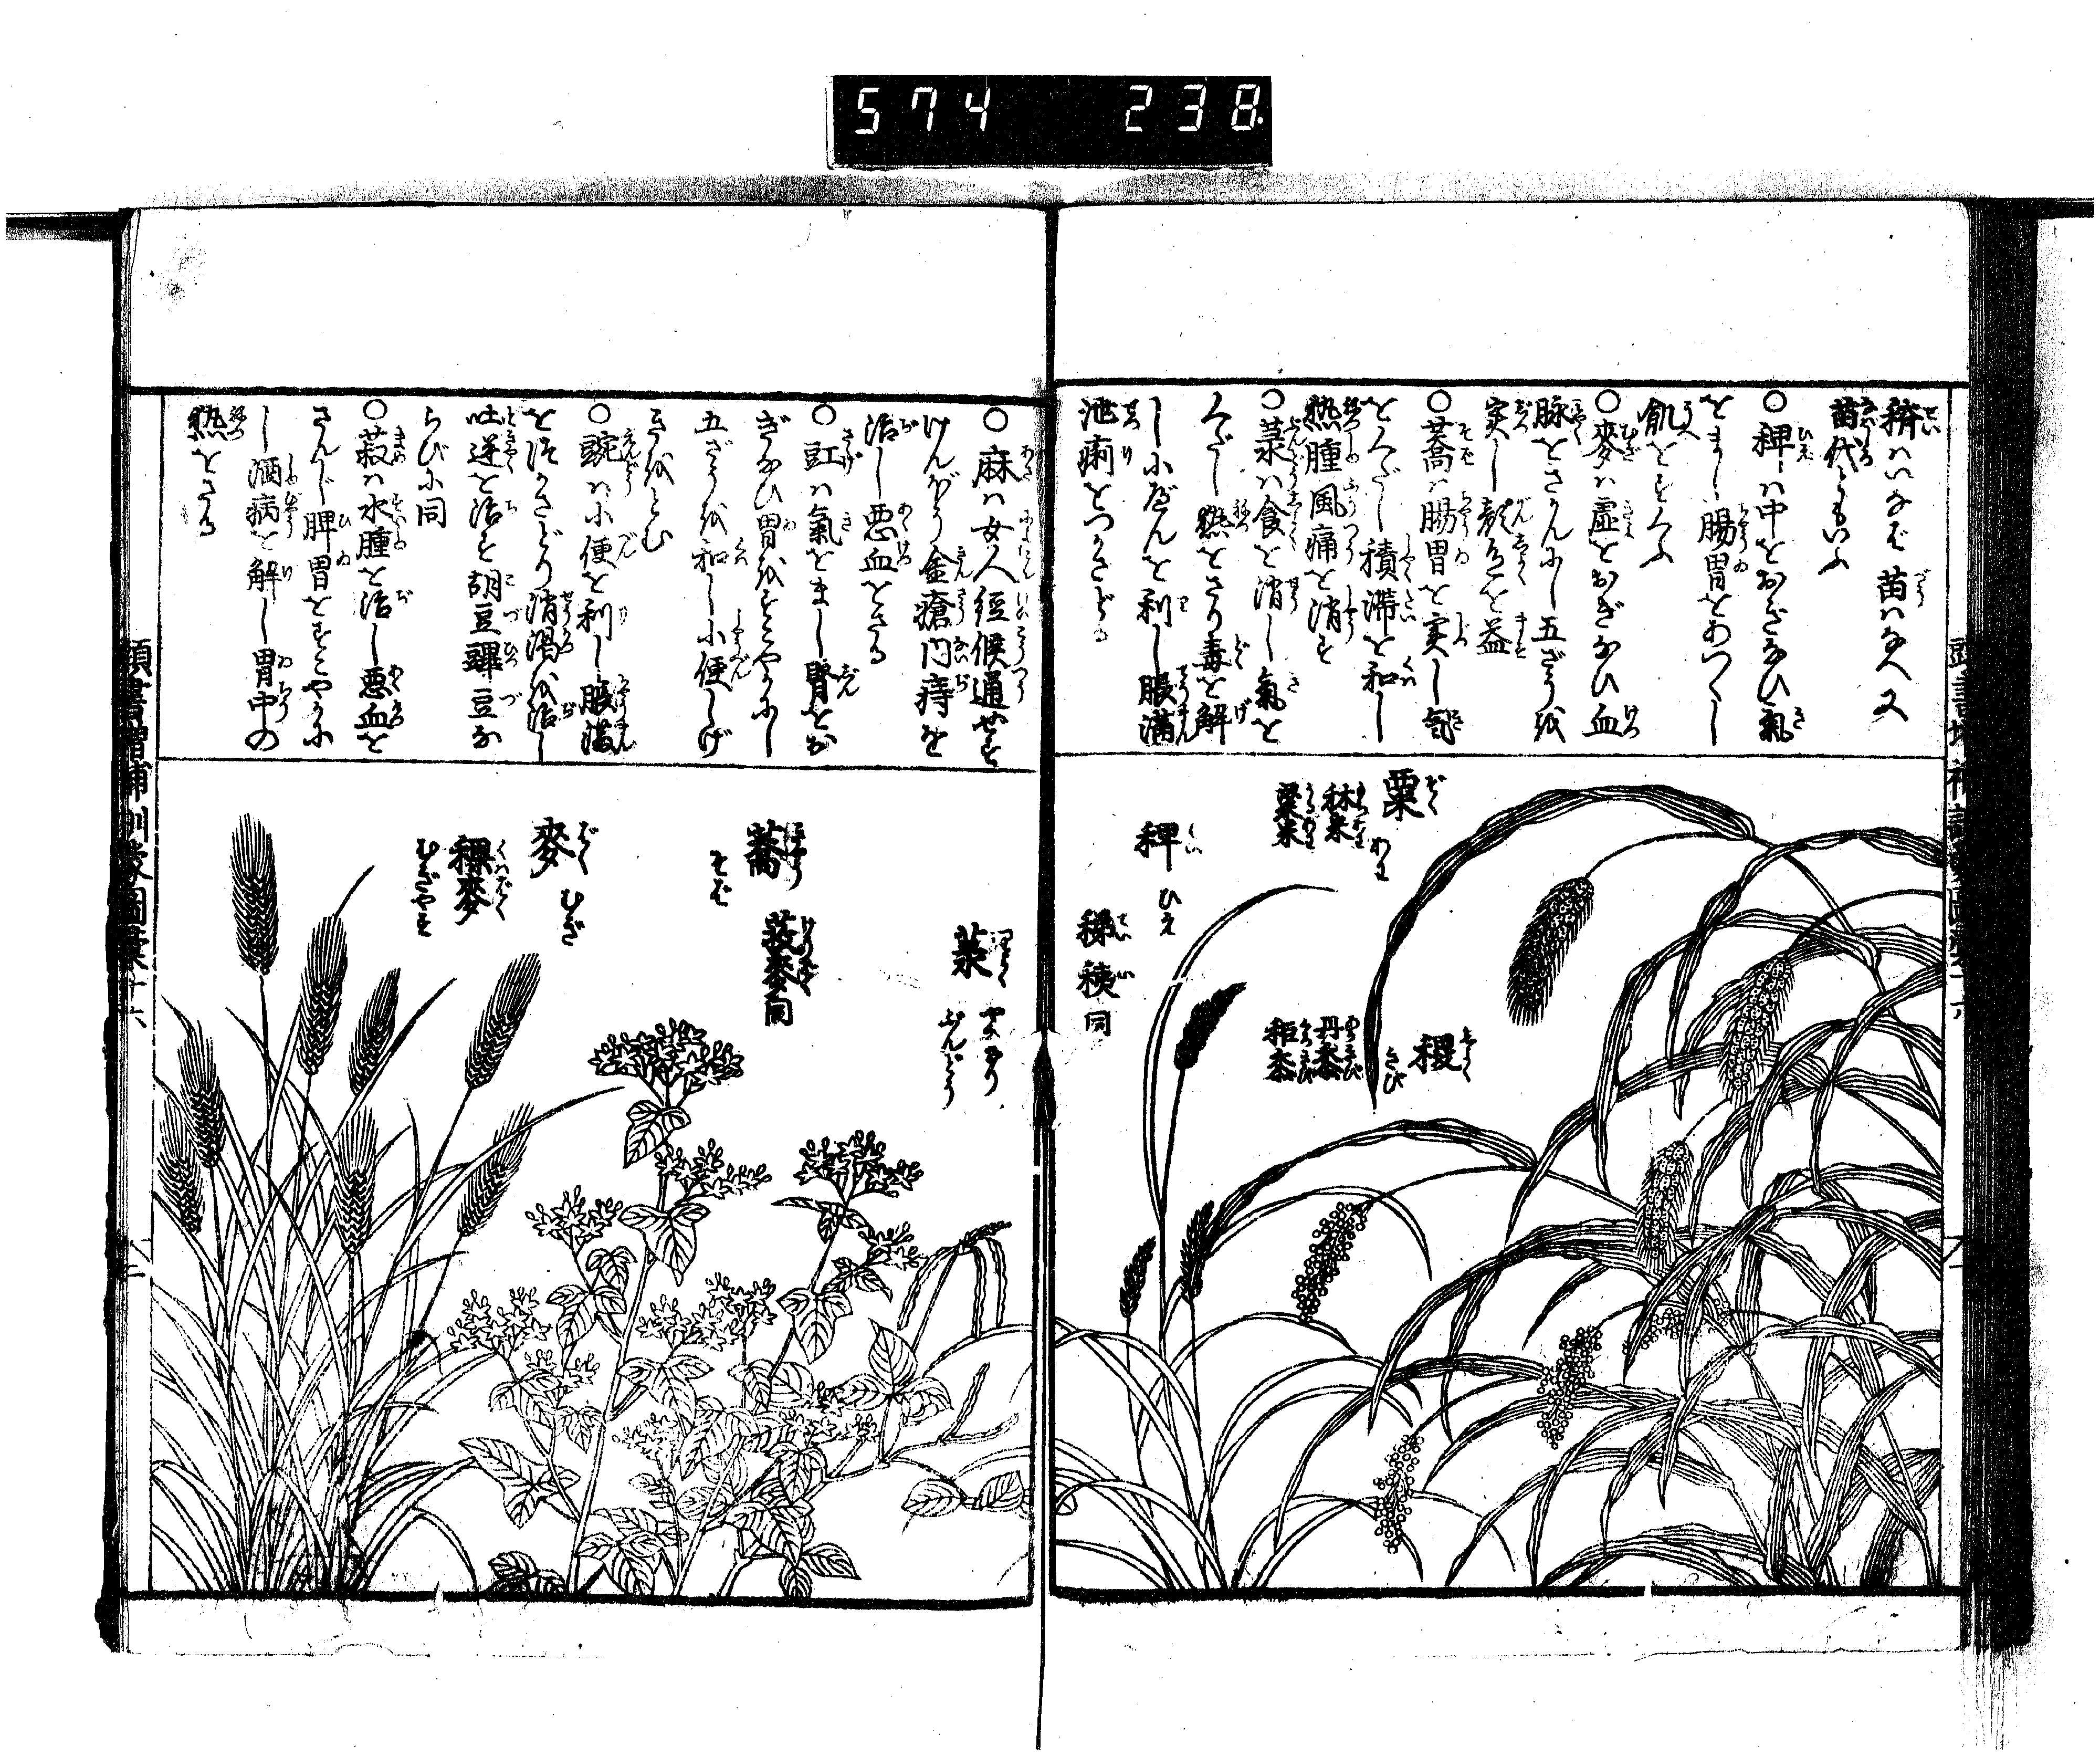 574 238
穧ハいなば苗ハなへ又
苗代ともいふ
○稗ハ中をおぎなひ氣
をまし腸胃をあつくし
飢をすくふ
○麥ハ虚をおぎなひ血
脉をさかんにし五ざうを
実し顔色を益
○蕎ハ腸胃を実し氣
をくだし積滞を和し
熱腫風痛を消す
○菉ハ食を消し氣を
くだし熱をさり毒を解
し小べんを利し脹満
泄痢をつかさどる
粟 ぞく あハ
秫米
粱米
稗 ひえ
稊 稊 同
稷 きび
丹黍
秬黍
○麻ハ女人経候通ぜず
けんばう金瘡内痔を
治し悪血をさる
○豇ハ氣をまし腎をお
ぎなひ胃をすこやかにし
五ざうを和し小便しげ
きをとむ
○豌ハ小便を利し脹満
をつかさどり消渇を治し
吐逆を治す胡豆豍豆な
らびに同
○菽ハ水腫を治し悪血を
さんじ脾胃をすこやかに
し酒病を解し胃中の
熱をさる
菉 やへなり ぶんどう
蕎 そば
荍麥同
麥 ばく むぎ
稞麥
むぎやす
頭書増補訓蒙圖彙十六